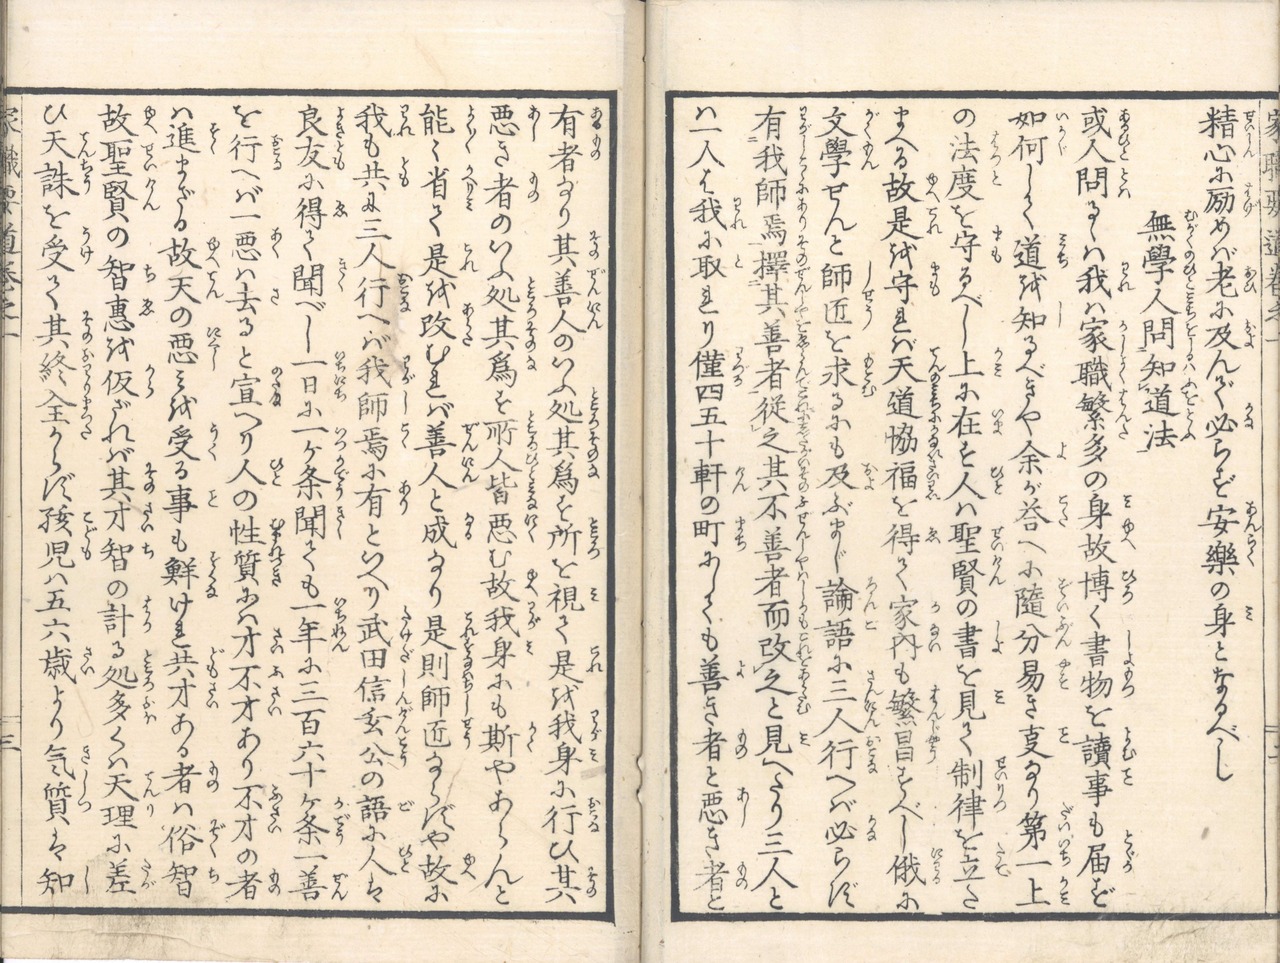 精心に励めば老に及んで必らず安樂の身となるべし
無學人問知道法
或人問るハ我ハ家職繁多の身故博く書物を讀事も届ず
如何して道を知るべきや余が答へに隨分易き亊なり第一上
の法度を守るべし上に在す人ハ聖賢の書を見て制律を立た
まへる故是を守れバ天道協福を得て家内も繁昌すべし俄に
文學せんと師匠を求るにも及ぶまじ論語に三人行へば必らず
有我師焉擇其善者從之其不善者而改之と見へたり三人と
ハ一人は我に取れり僅四五十軒の町にしても善き者と悪き者と
有者なり其善人のいふ処其爲を所を視て是を我身に行ひ其
悪き者のいふ処其爲を所人皆悪む故我身にも斯やあらんと
能く省て是を改むれバ善人と成なり是則師匠ならずや故に
我も共に三人行へバ我師焉に有といへり武田信玄公の語に人は
良友に得て聞べし一日に一ヶ条聞ても一年に三百六十ヶ条一善
を行へバ一悪ハ去ると宣へり人の性質にハ才不才あり不才の者
ハ進まざる故天の悪ミを受る事も鮮けれ共才ある者ハ俗智
故聖賢の智惠を仮ざれバ其才智の計る処多くハ天理に差
ひ天誅を受て其終全からず孩児ハ五六歳より気質は知
家職要道巻之一
三